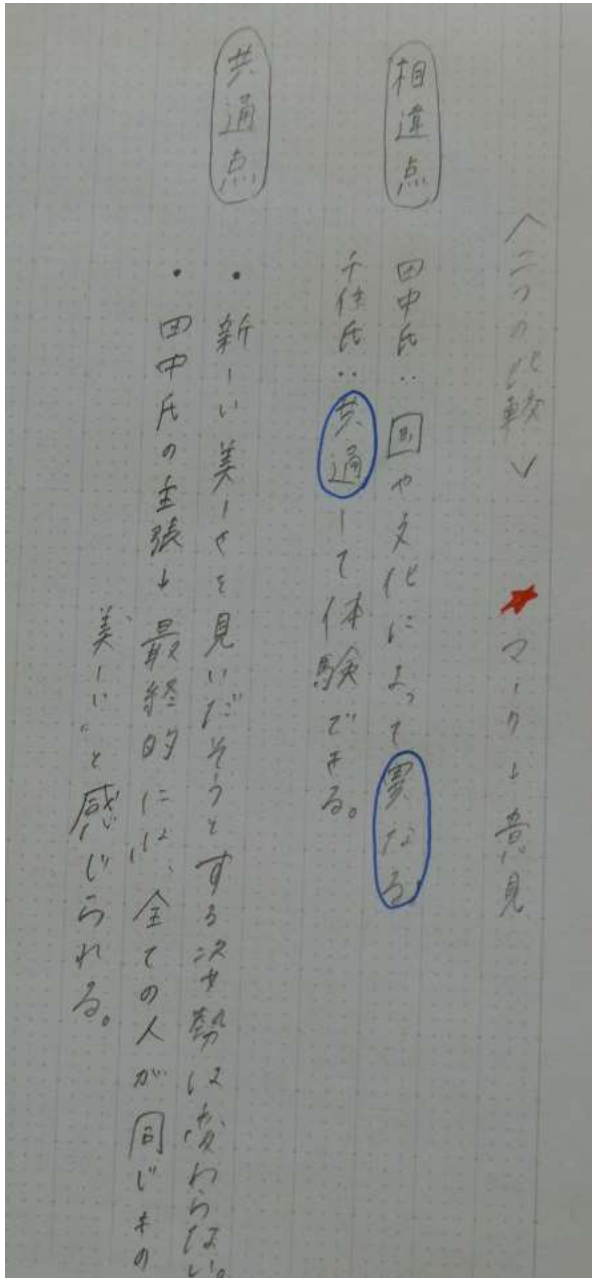 〈二つの比較〉 ★マーク→意見
相違点 田中氏：国や文化によって異なる
千住氏：共通して体験できる。
共通点 ・新しい美しさを見いだそうとする姿勢は変わらない。
・田中氏の主張→最終的には、全ての人が同じもの
美しい。と感じられる。